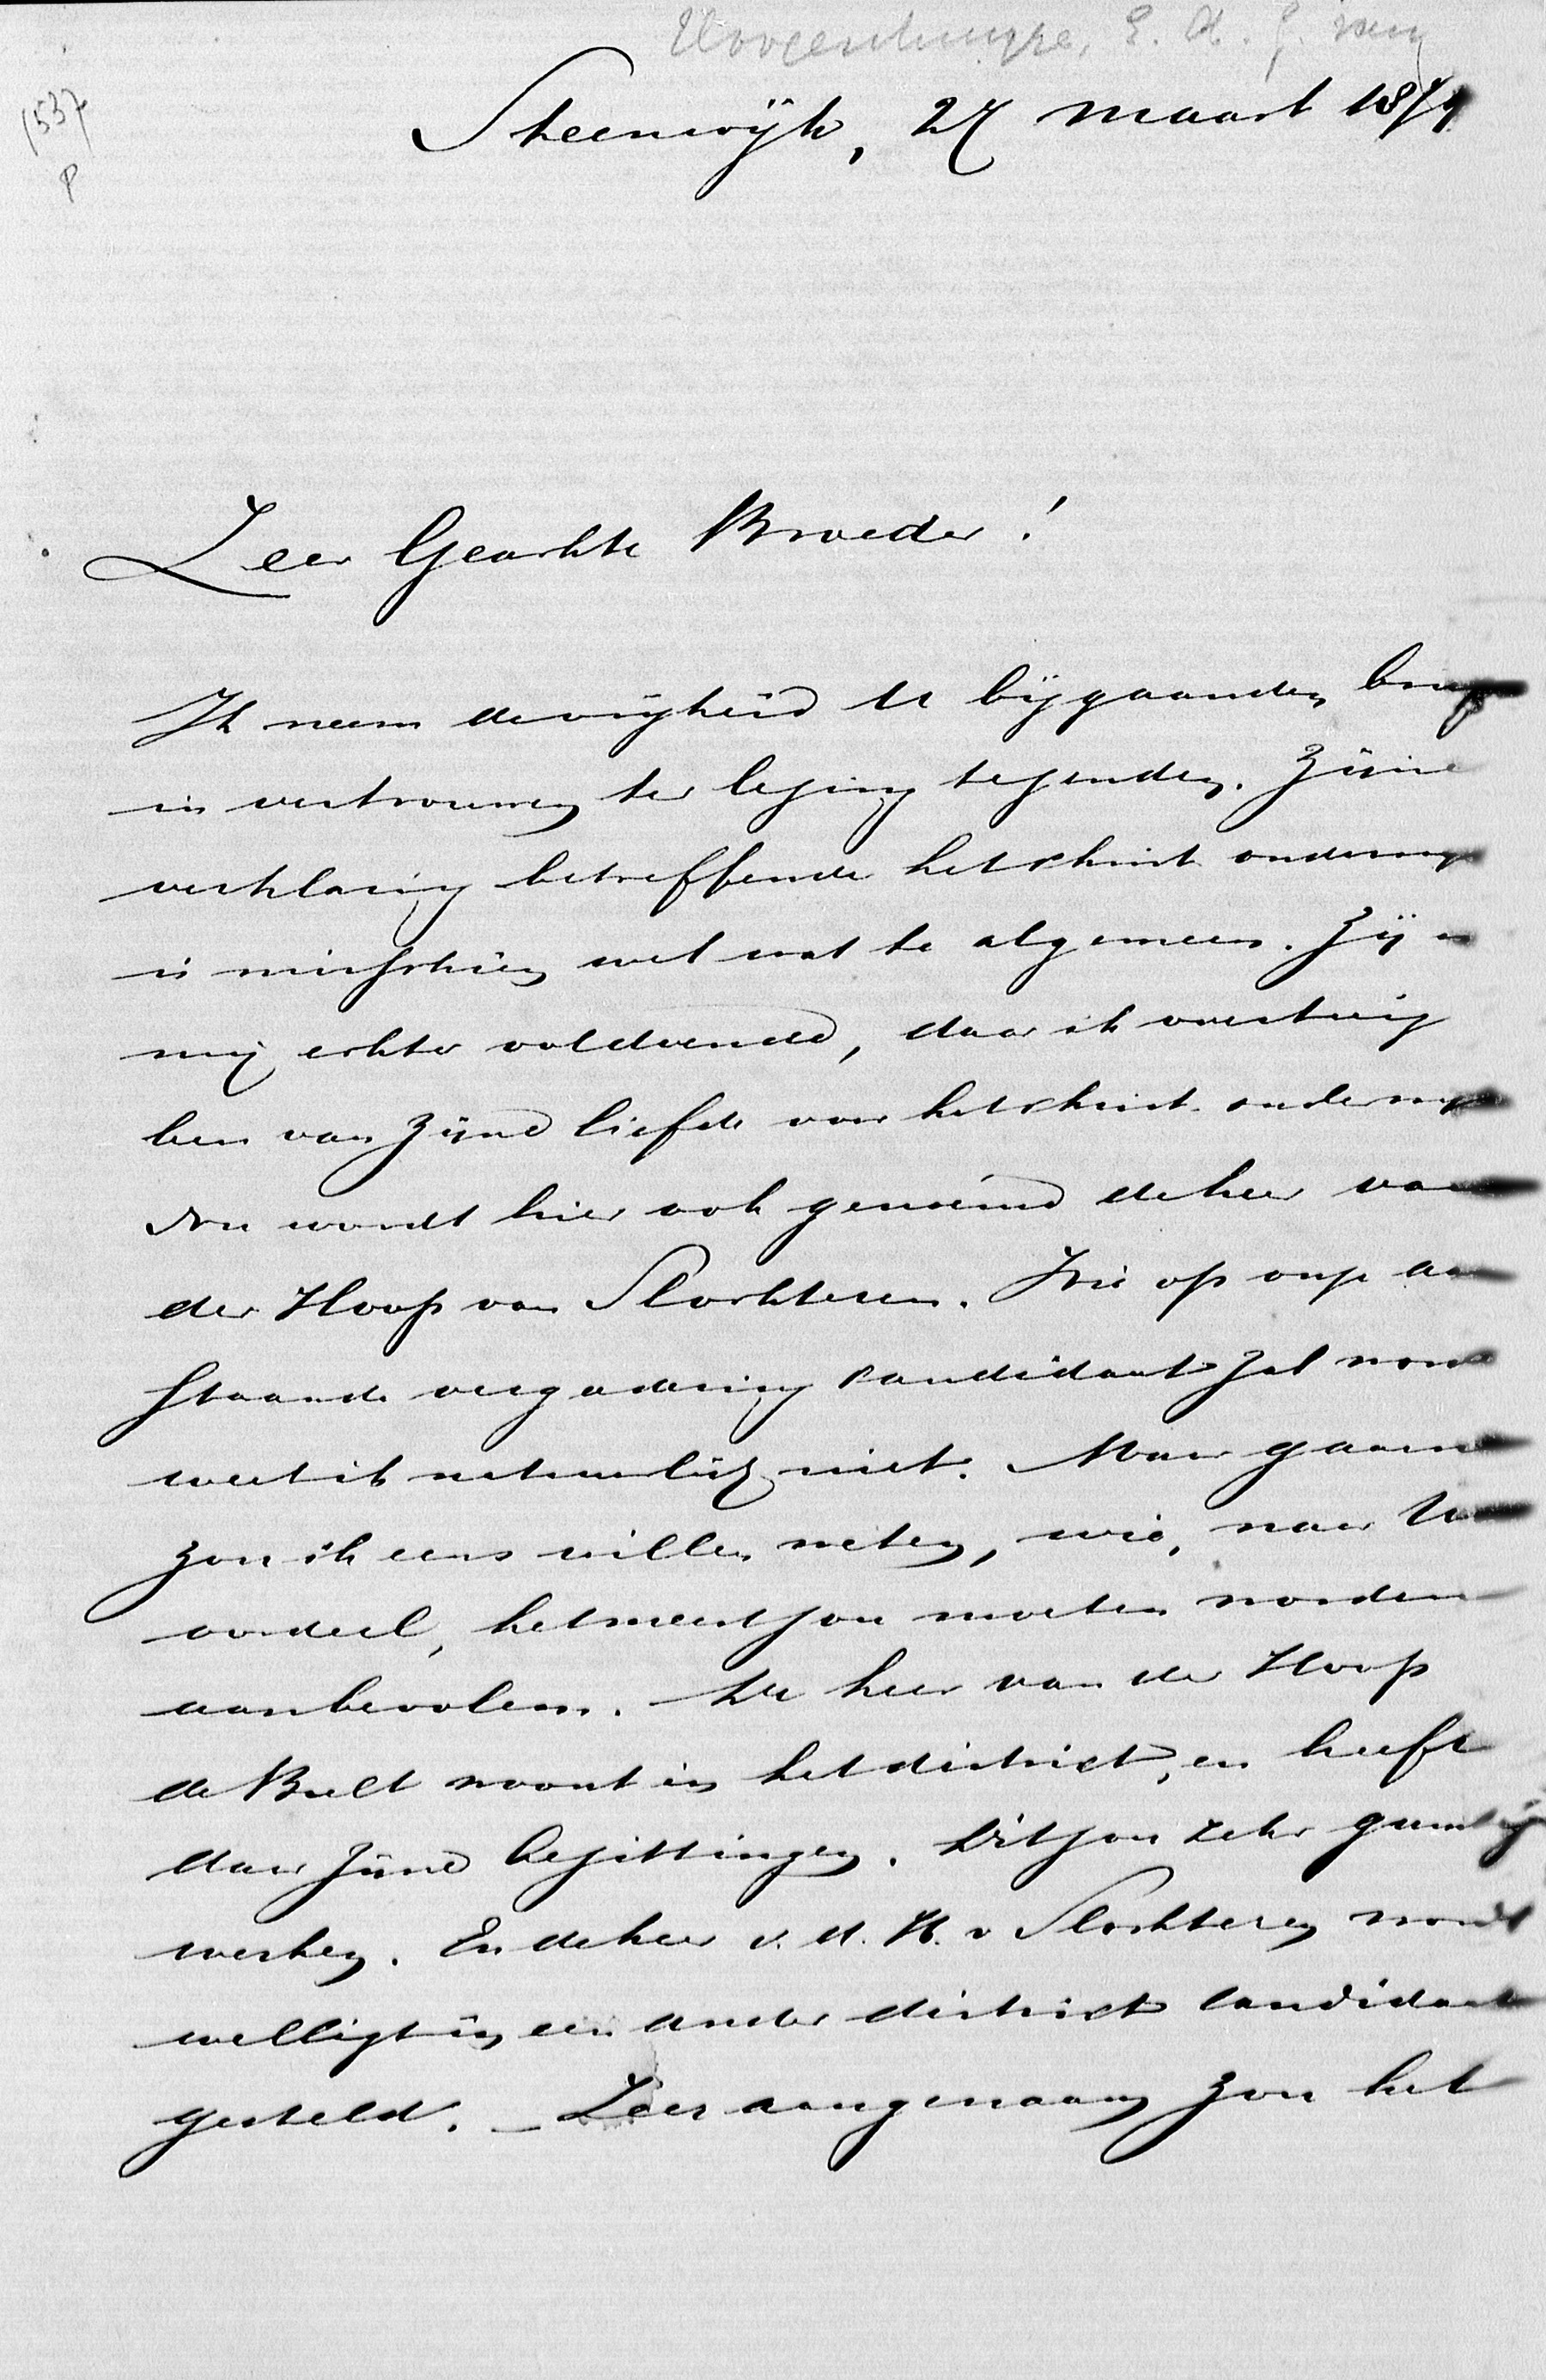 Hoogenhuyze, E. A. G. van
1537
P
Steenwijk, 27 Maart 1879
Zeer Geachte Broeder!
Ik neem de vrijheid U bijgaanden brief
in vertrouwen ter lezing te zenden. Zijne
verklaring betreffende het christ. onderwijs
is misschien wel wat te algemeen. Zij is
mij echter voldoende, daar ik overtuigd
ben van zijne liefde voor het christ. onderwijs
Nu wordt hier ook genoemd de heer van
der Hoop van Slochteren. Wie op onze aan
staande vergadering candidaat zal worden
weet ik natuurlijk niet. Maar gaarne
zou ik eens willen weten, wie, naar Uw
oordeel, het meest zou moeten worden
aanbevolen. De heer van der Hoop
de Bult woont in het district, en heeft
daar zijne bezittingen. Dit zou zeker gunstig
werken. En de heer v. d. H. v Slochteren wordt
welligt in een ander district candidaat
gesteld. – Zeer aangenaam zou het